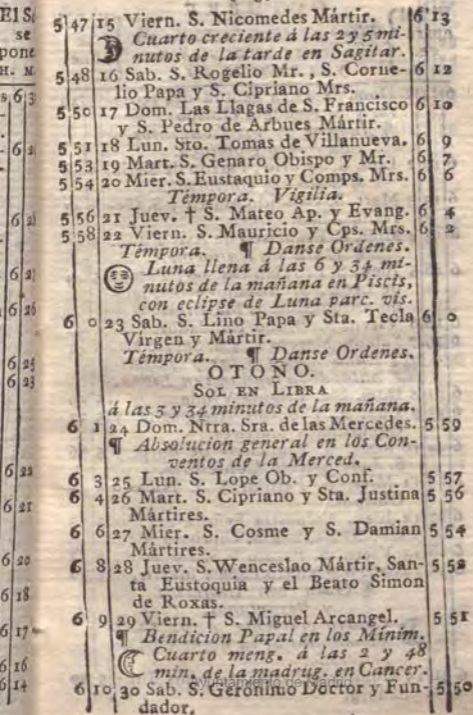 El S
se
pone
H. M
5 47 15 Viern. S. Nicomedes Mártir. 6 13
Cuarto creciente á las 2 y 5 mi-
nutos de la tarde en Sagitar.
5 48 16 Sab. S. Rogelio Mr., S. Corne- 6 12
lio Papa y S. Cipriano Mrs.
5 50 17 Dom. Las Llagas de S. Francisco 6 10
y S. Pedro de Arbues Mártir.
5 51 18 Lun. Sto. Tomas de Villanueva. 6 9
5 53 19 Mart. S. Genaro Obispo y Mr. 6 7
5 54 20 Mier. S. Eustaquio y Comps. Mrs. 6 6
Témpora. Vigilia.
5 56 21 Juev. † S. Mateo Ap. y Evang. 6 4
5 58 22 Viern. S. Mauricio y Cps. Mrs. 6 2
Témpora. ¶ Danse Ordenes.
Luna llena á las 6 y 34 mi-
nutos de la mañana en Piscis,
con eclipse de Luna parc. vis.
6 0 23 Sab. S. Lino Papa y Sta. Tecla 6 0
Virgen y Mártir.
Témpora. ¶ Danse Ordenes.
OTOÑO.
SOL EN LIBRA
á las 3 y 34 minutos de la mañana.
6 1 24 Dom. Nrra. Sra. de las Mercedes. 5 59
¶ Absolucion general en los Con-
ventos de la Merced.
6 3 25 Lun. S. Lope Ob. y Conf. 5 57
6 4 26 Mart. S. Cipriano y Sta. Justina 5 56
Mártires.
6 6 27 Mier. S. Cosme y S. Damian 5 54
Mártires.
6 8 28 Juev. S. Wenceslao Mártir, San- 5 52
ta Eustoquia y el Beato Simon
de Roxas.
6 9 29 Viern. † S. Miguel Arcangel. 5 51
¶ Bendicion Papal en los Mínim.
Cuarto meng. á las 2 y 48
min. de la madrug. en Cancer.
6 10 30 Sab. S. Gerónimo Doctor y Fun- 5 50
dador.
Ayuntamiento de Madrid